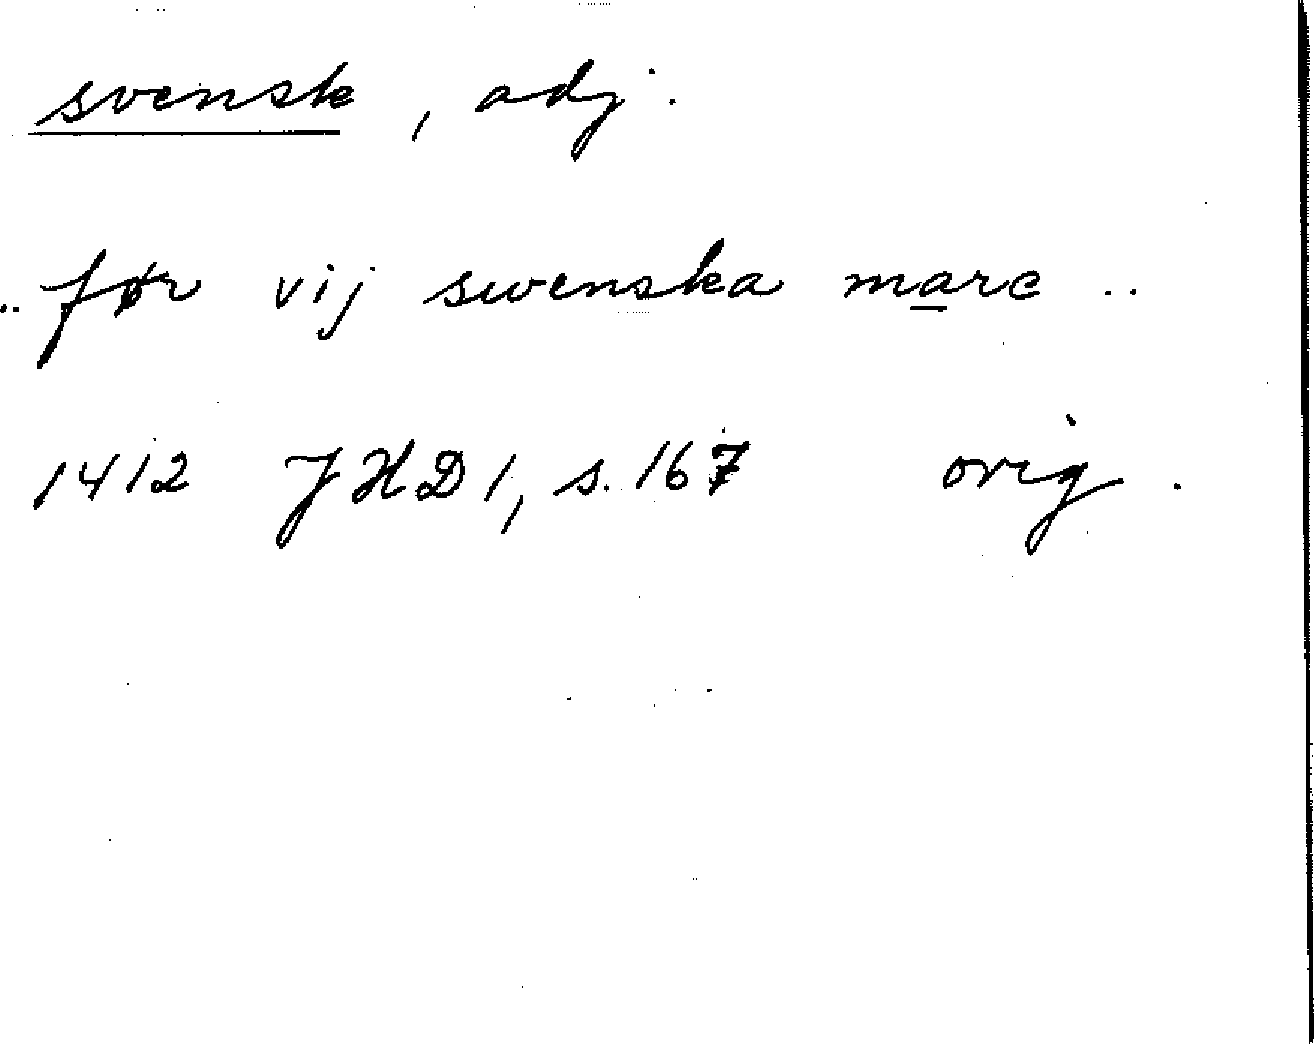 svensk, adj.
.. før vij swenska marc ..
1412 JHD 1, s. 167 orig.